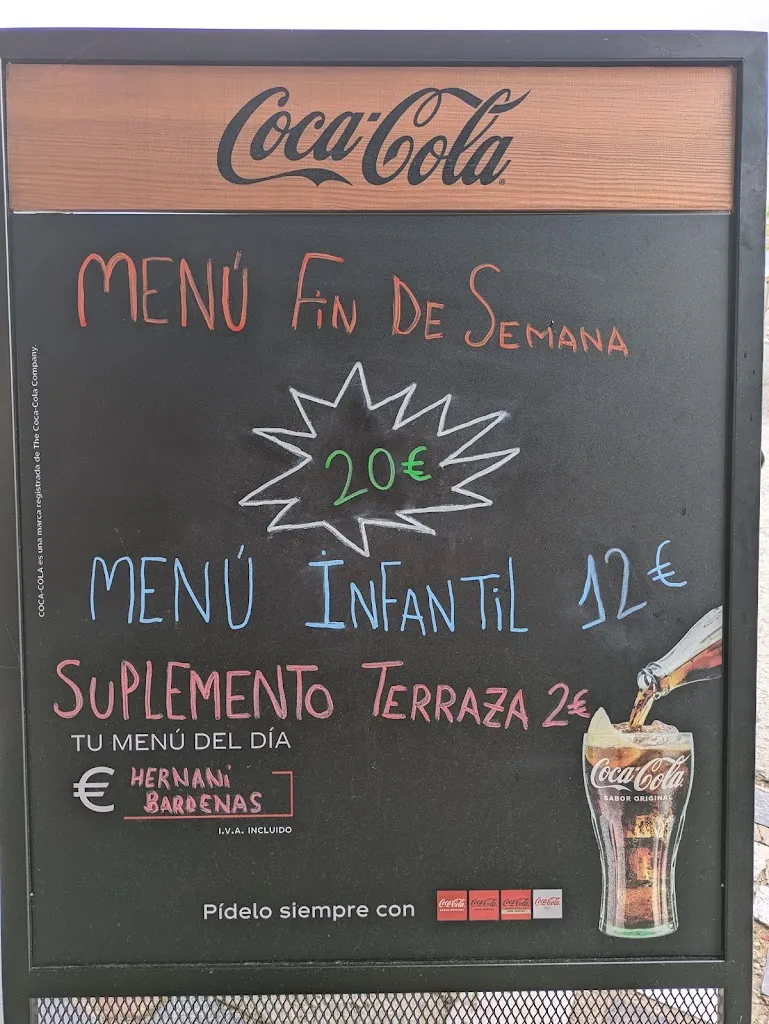 Coca-Cola
MENÚ FIN DE SEMANA
20€
MENÚ INFANTIL 12€
SUPLEMENTO TERRAZA 2€
TU MENÚ DEL DÍA
€ HERNANI
BARDENAS
I.V.A. INCLUIDO
Coca-Cola
SABOR ORIGINAL
Pídelo siempre con
Coca-Cola Coca-Cola Coca-Cola Coca-Cola
COCA-COLA es una marca registrada de The Coca-Cola Company.